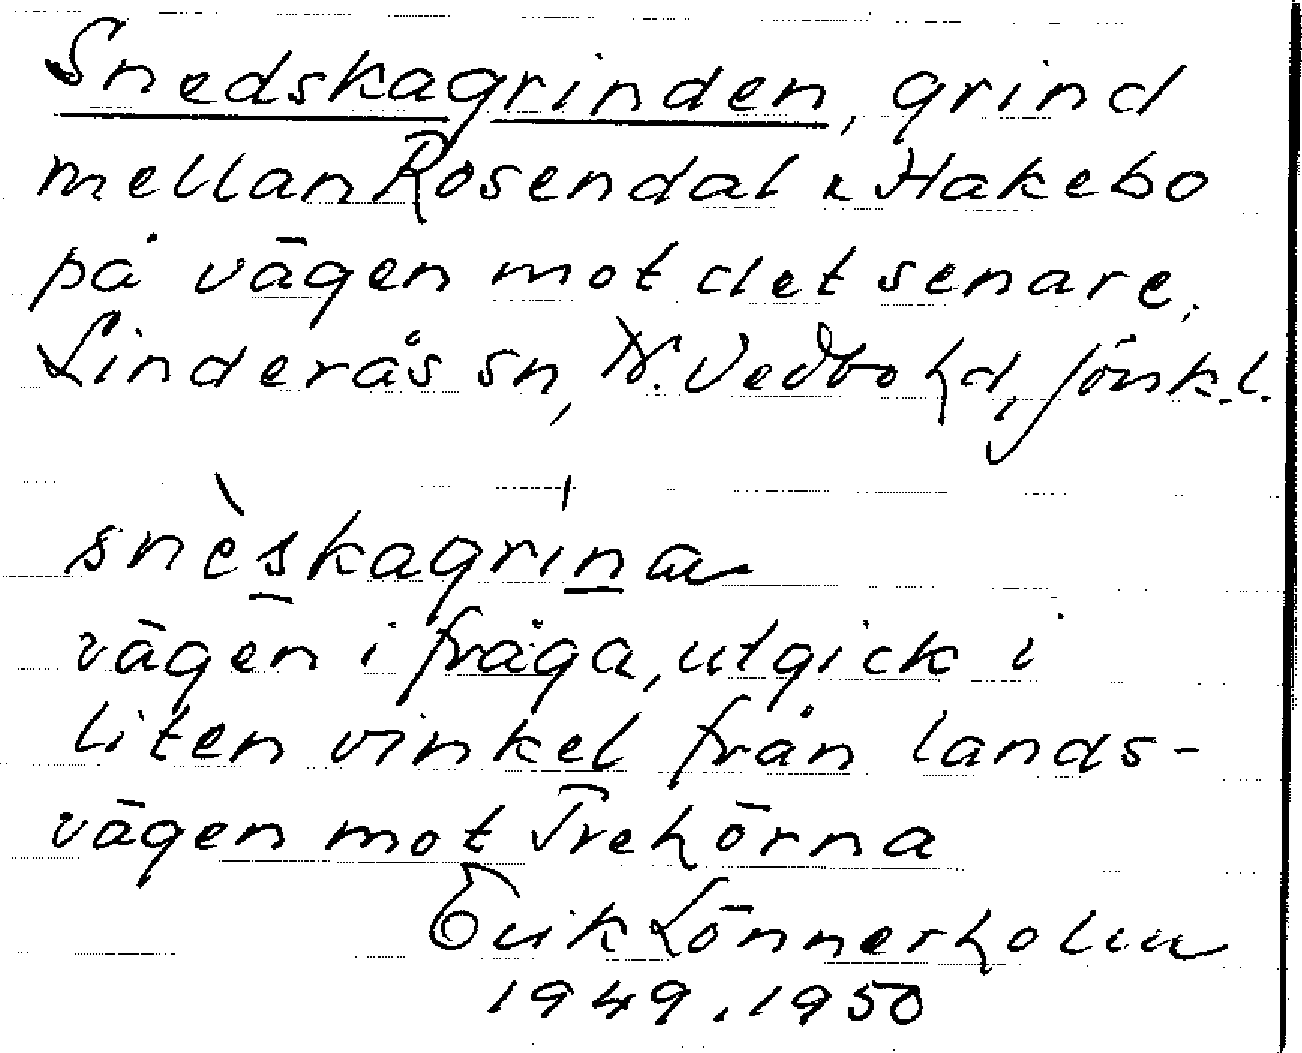 Snedskagrinden, grind
mellan Rosendal & Hakebo
på vägen mot det senare.
Linderås sn, N. Vedbo hd, Jönk.l.
snèskagrína
vägen i fråga, utgick i
liten vinkel från lands-
vägen mot Trehörna
Erik Lönnerholm
1949.1950